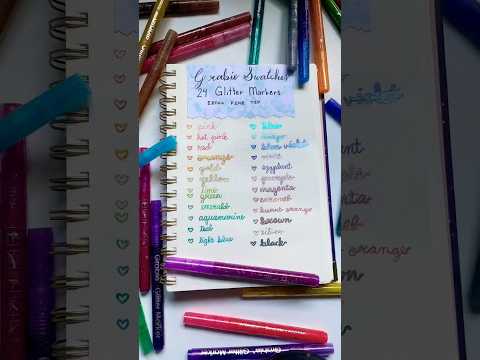 Grabie Swatches
24 Glitter Markers
EXTRA FINE TIP
pink
hot pink
red
orange
gold
yellow
lime
green
emerald
aquamarine
teal
light blue
blue
violet
eggplant
purple
magenta
burnt orange
brown
silver
black
Grabie Glitter Marker
Glitter Marker